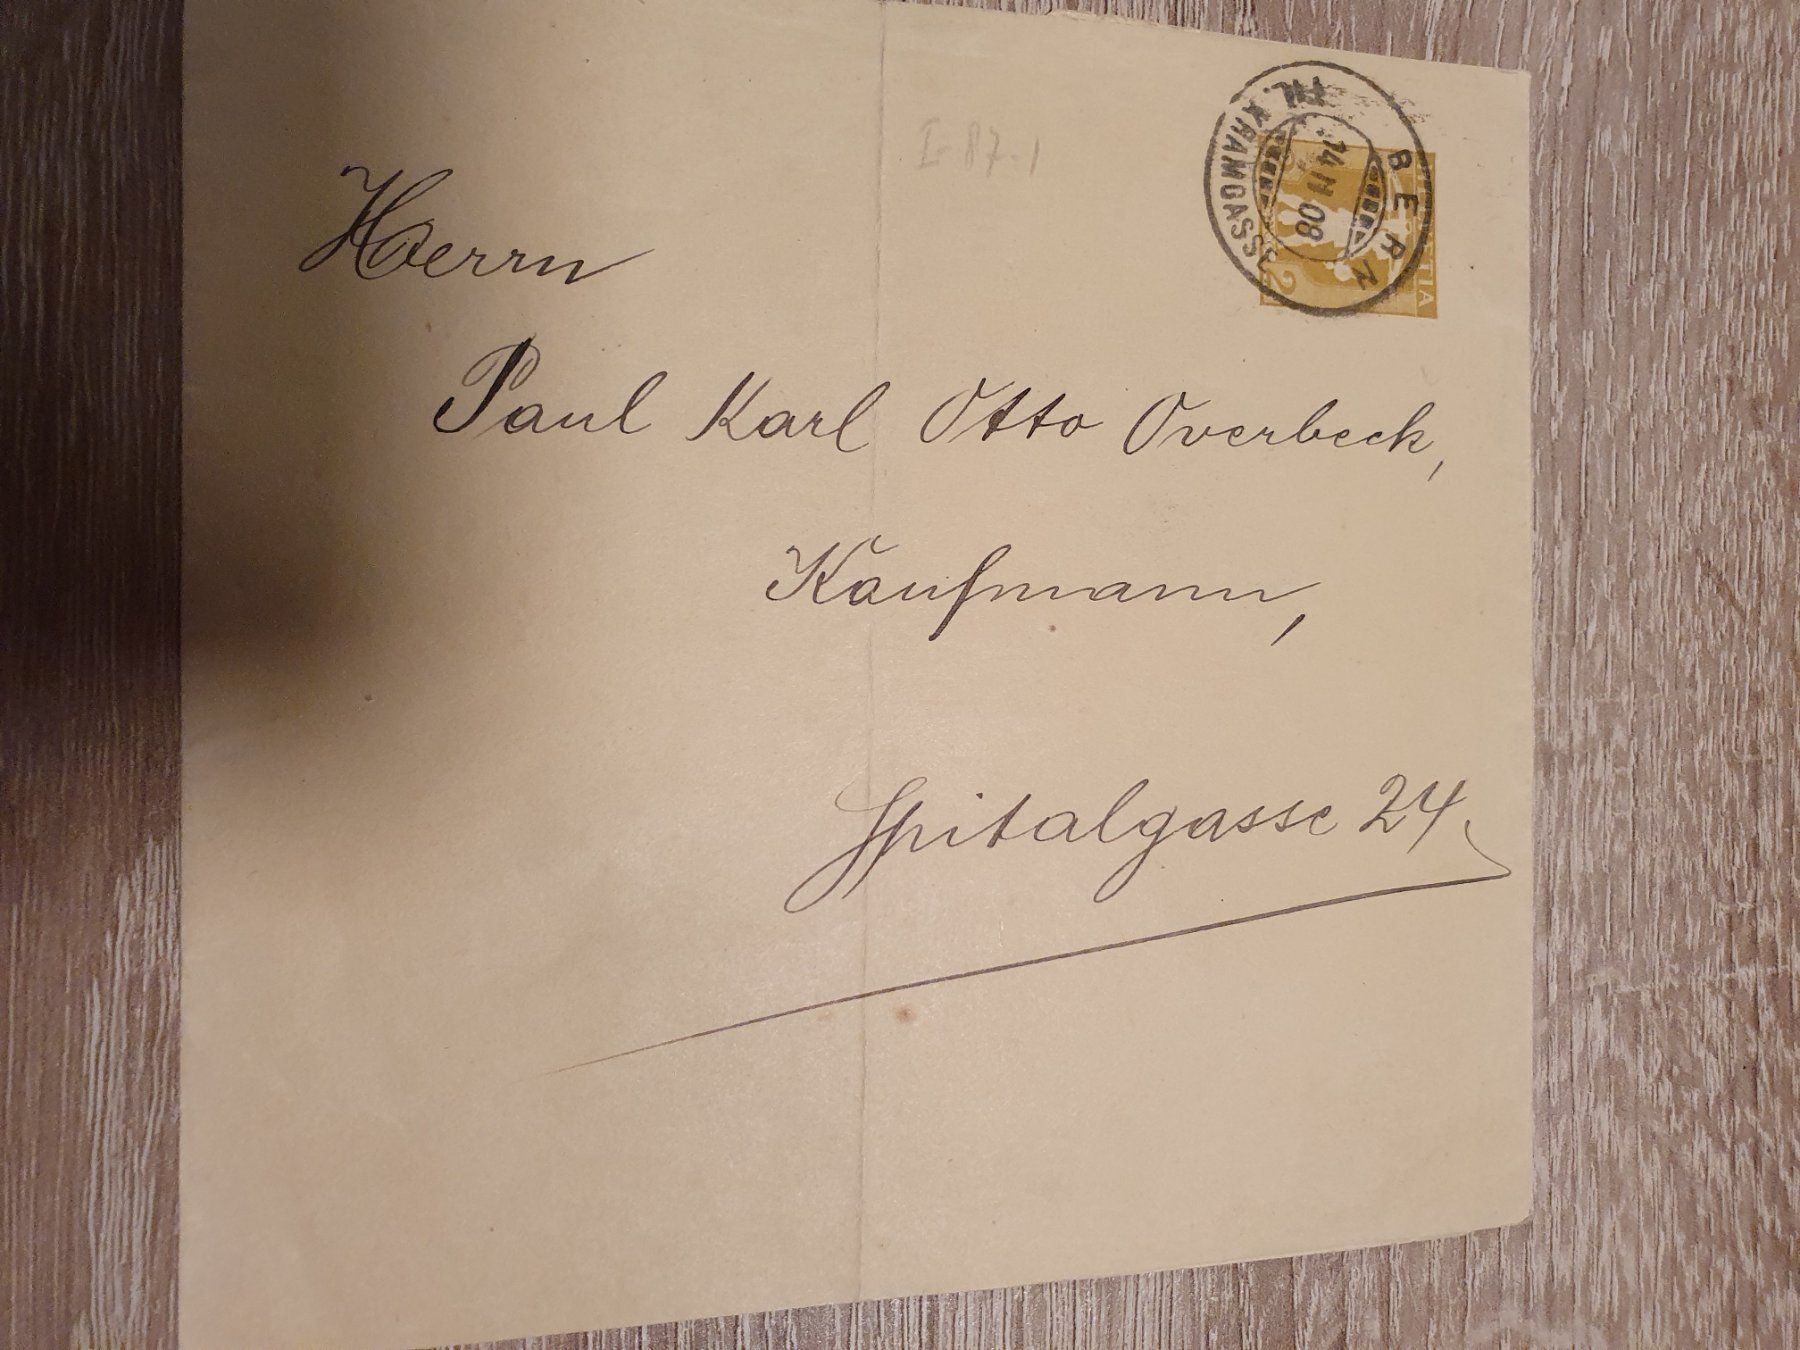 I-87.1
BERN
FIL. KRAMGASSE
14 II 08
HELVETIA
2
Herrn
Paul Karl Otto Overbeck,
Kaufmann,
Spitalgasse 24.